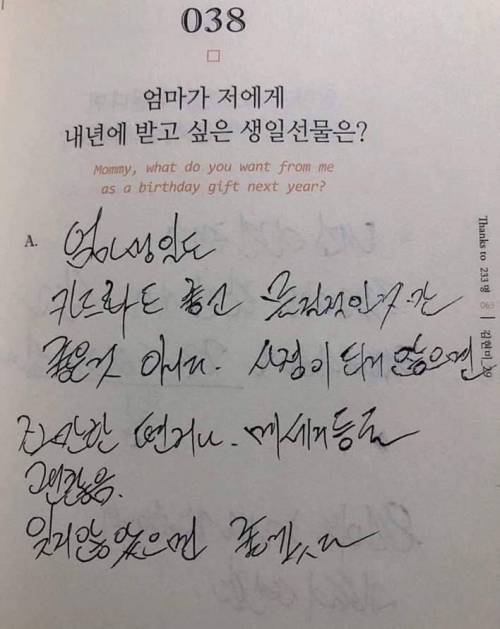 038
엄마가 저에게
내년에 받고 싶은 생일선물은?
Mommy, what do you want from me
as a birthday gift next year?
A. 엄마생일도
카드라도 좋고 물질적인것만
좋은것 아니다. 사정이 되지 않으면
간단한 편지나. 메세지등도
괜찮음.
잊지않았으면 좋겠다
Thanks to 233 명 063 | 김현미